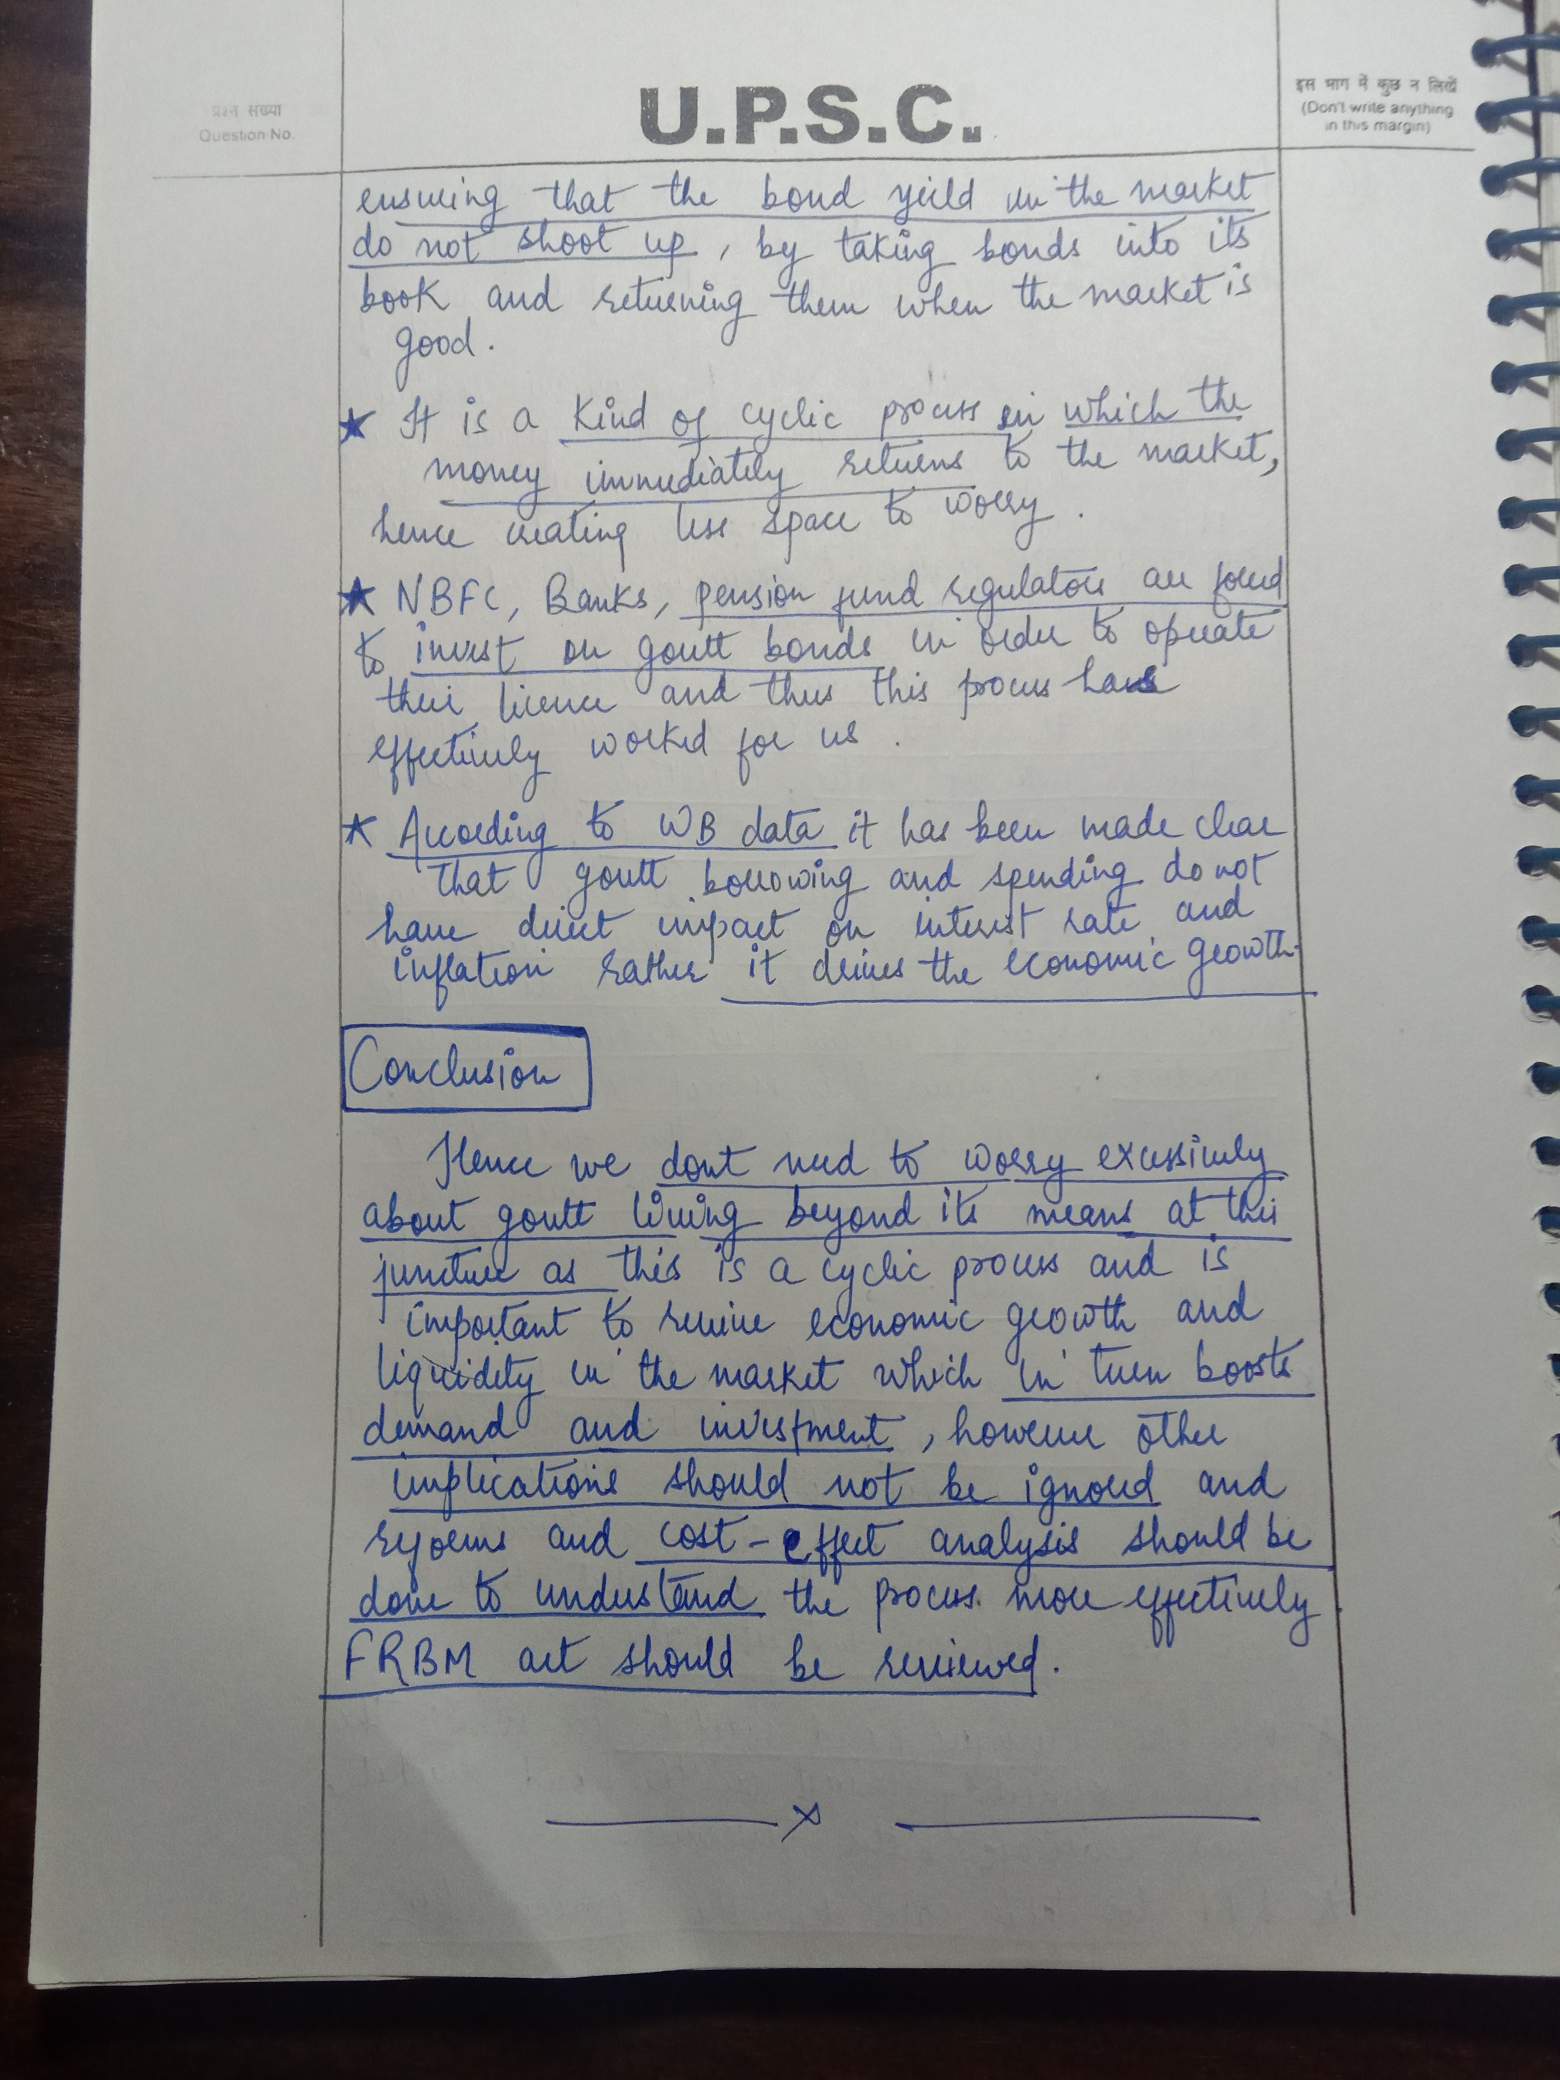 प्रश्न संख्या
Question No.
U.P.S.C.
इस भाग में कुछ न लिखें
(Don't write anything
in this margin)
ensuring that the bond yeild in the market
do not shoot up, by taking bonds into its
book and returning them when the market is
good.
★ It is a kind of cyclic process in which the
money immediately returns to the market,
hence creating less space to worry.
★ NBFC, Banks, pension fund regulators are forced
to invest on govtt bonds in order to operate
their licence and thus this process has
effectively worked for us.
★ According to WB data it has been made clear
that govtt borrowing and spending do not
have direct impact on interest rate and
inflation rather it drives the economic growth.
Conclusion
Hence we dont need to worry excessively
about govtt living beyond its means at this
juncture as this is a cyclic process and is
important to revive economic growth and
liquidity in the market which in turn boosts
demand and investment, however other
implications should not be ignored and
reforms and cost-effect analysis should be
done to understand the process more effectively.
FRBM act should be reviewed.